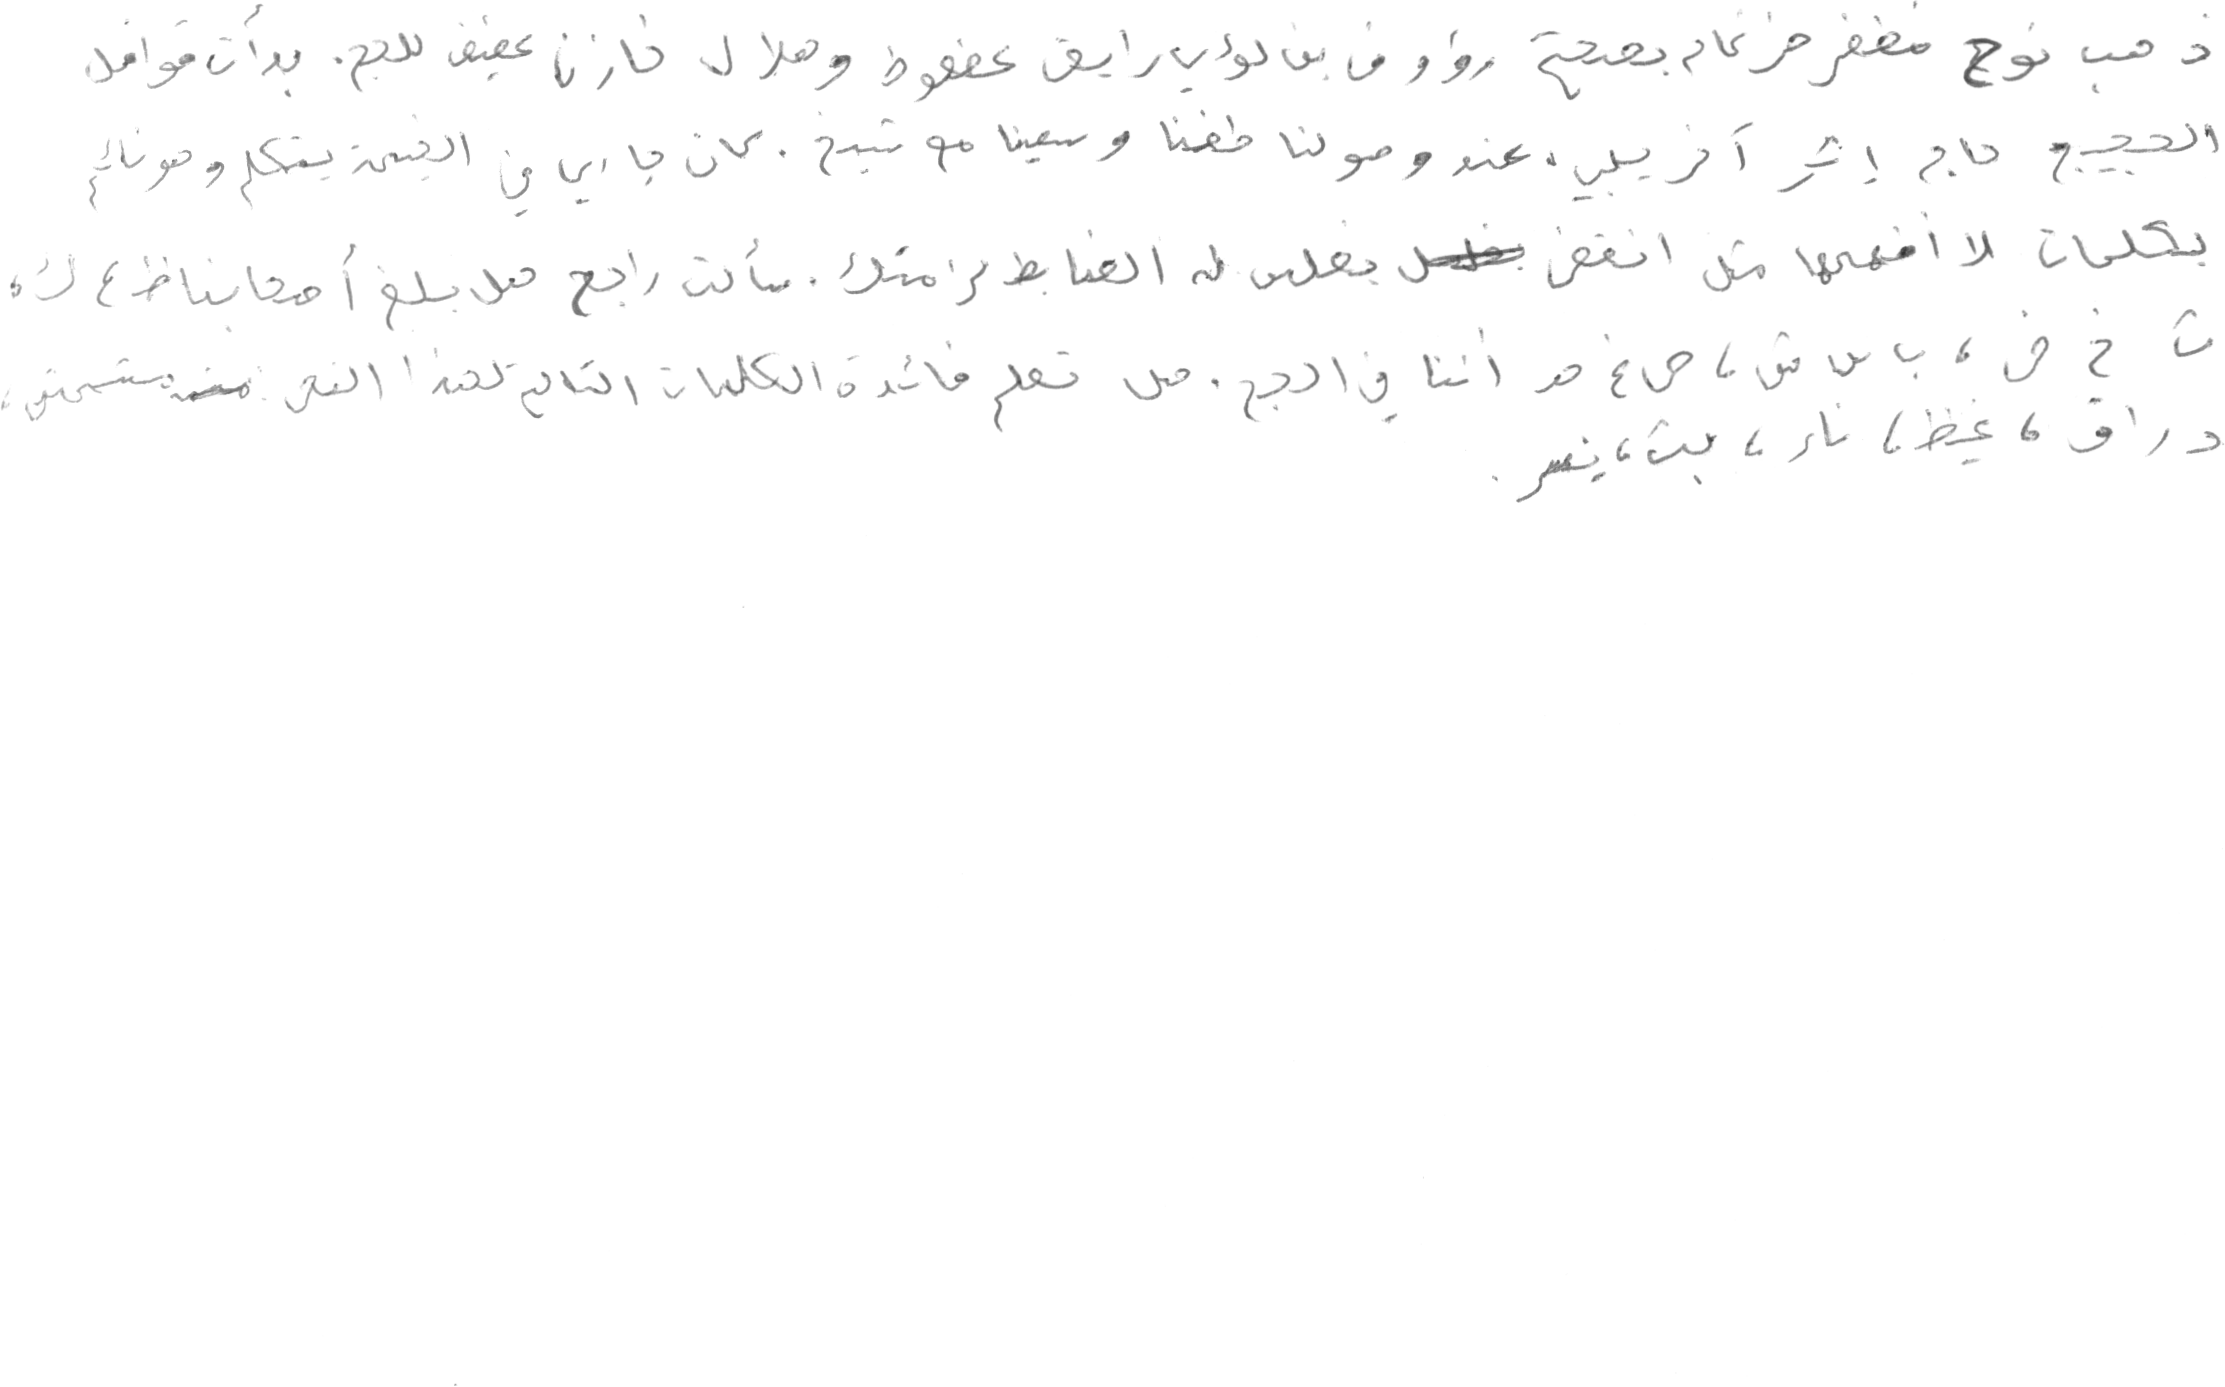 ذهب نوح مظفر ضرغام بصحبة رؤوف بن لؤي رايق محفوظ وهلال خازن عفيف للحج. بدأت قوافل
الحجيج حاج إثر آخر يلبي. عند وصولنا طفنا وسعينا مع شيخ. كان جاري في الخيمة يتكلم وهو نائم
بكلمات لا أفهمها مثل انقض الضابط مثلك. سألت رابح هل بلغ أصحابنا ظ ع ك،
ث خ ض، ب س ش، ص غ هـ أننا في الحج. هل تعلم فائدة الكلمات التالية لهذا النص مشمش،
دراق، غيظ، ناء، بث،